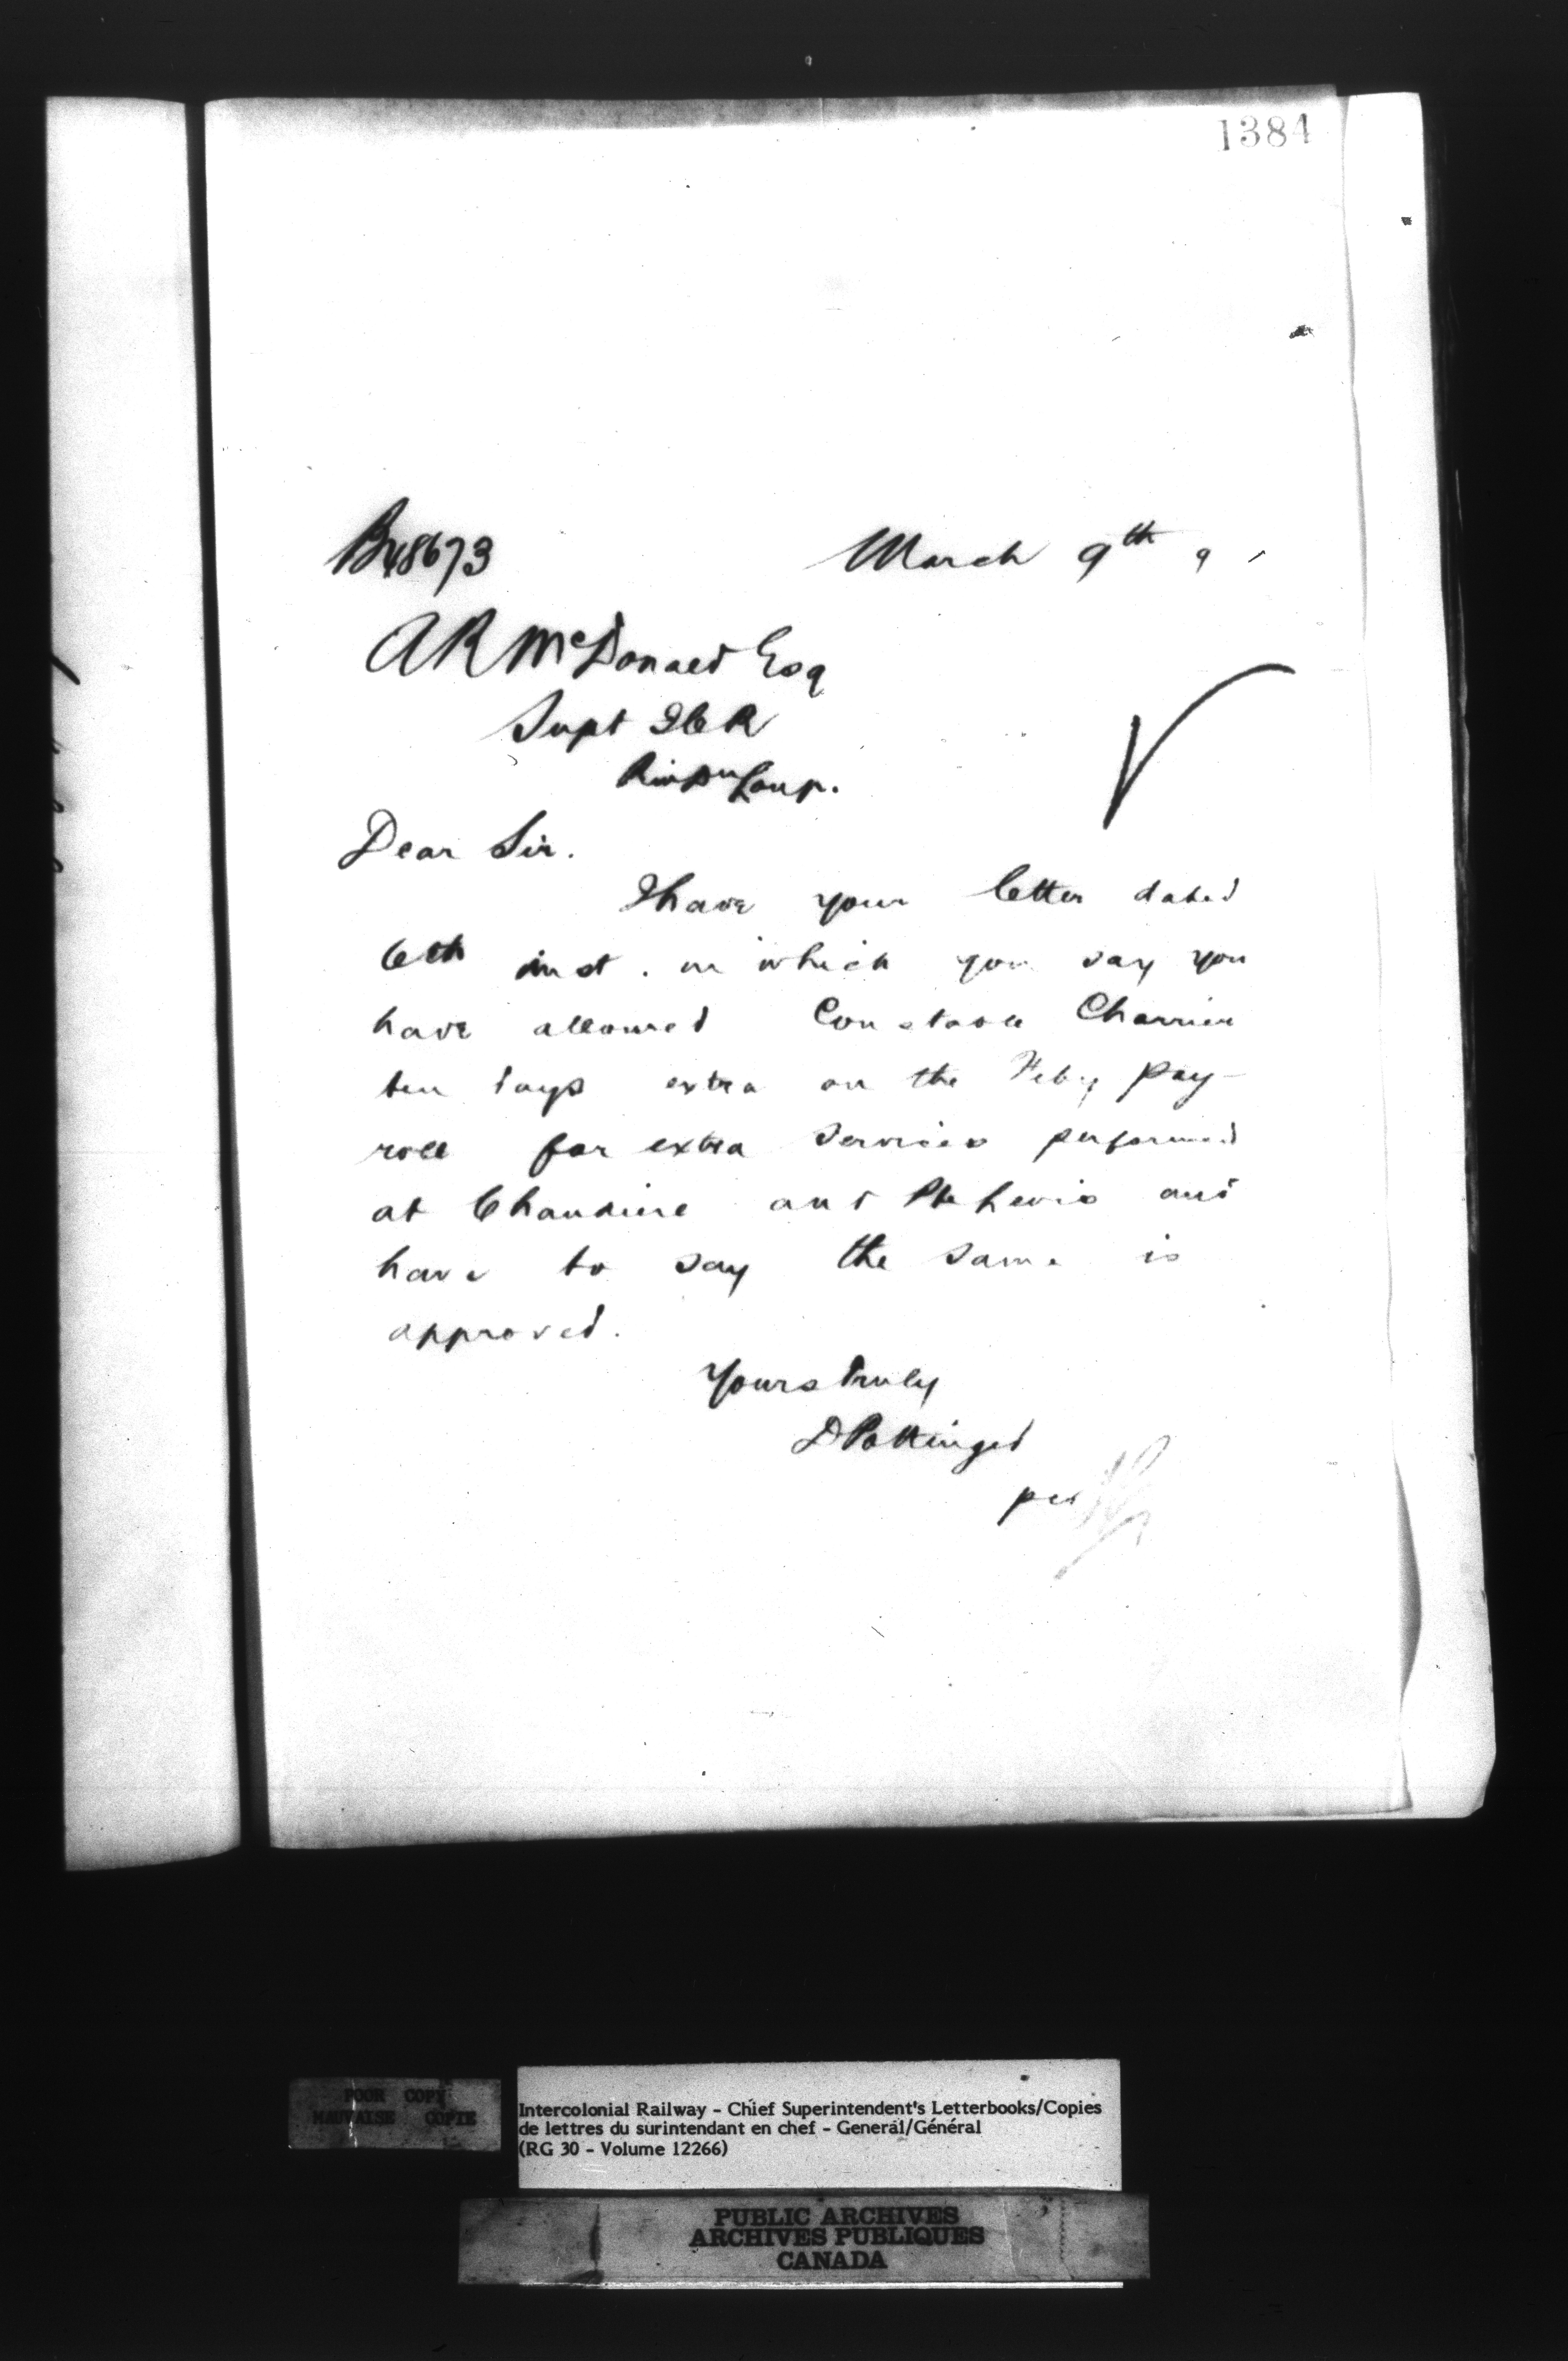 1384
B48673 March 9th 9
A R McDonald Esq
Supt ICR
Riv Du Loup.
Dear Sir.
I have your letter dated
6th inst. in which you say you
have allowed Constable Charrier
ten days extra on the Feby pay-
roll for extra services performed
at Chaudiere and Pte Levis and
have to say the same is
approved.
Yours truly
D Pottinger
per
POOR COPY
MAUVAISE COPIE
Intercolonial Railway - Chief Superintendent's Letterbooks/Copies
de lettres du surintendant en chef - General/Général
(RG 30 - Volume 12266)
PUBLIC ARCHIVES
ARCHIVES PUBLIQUES
CANADA